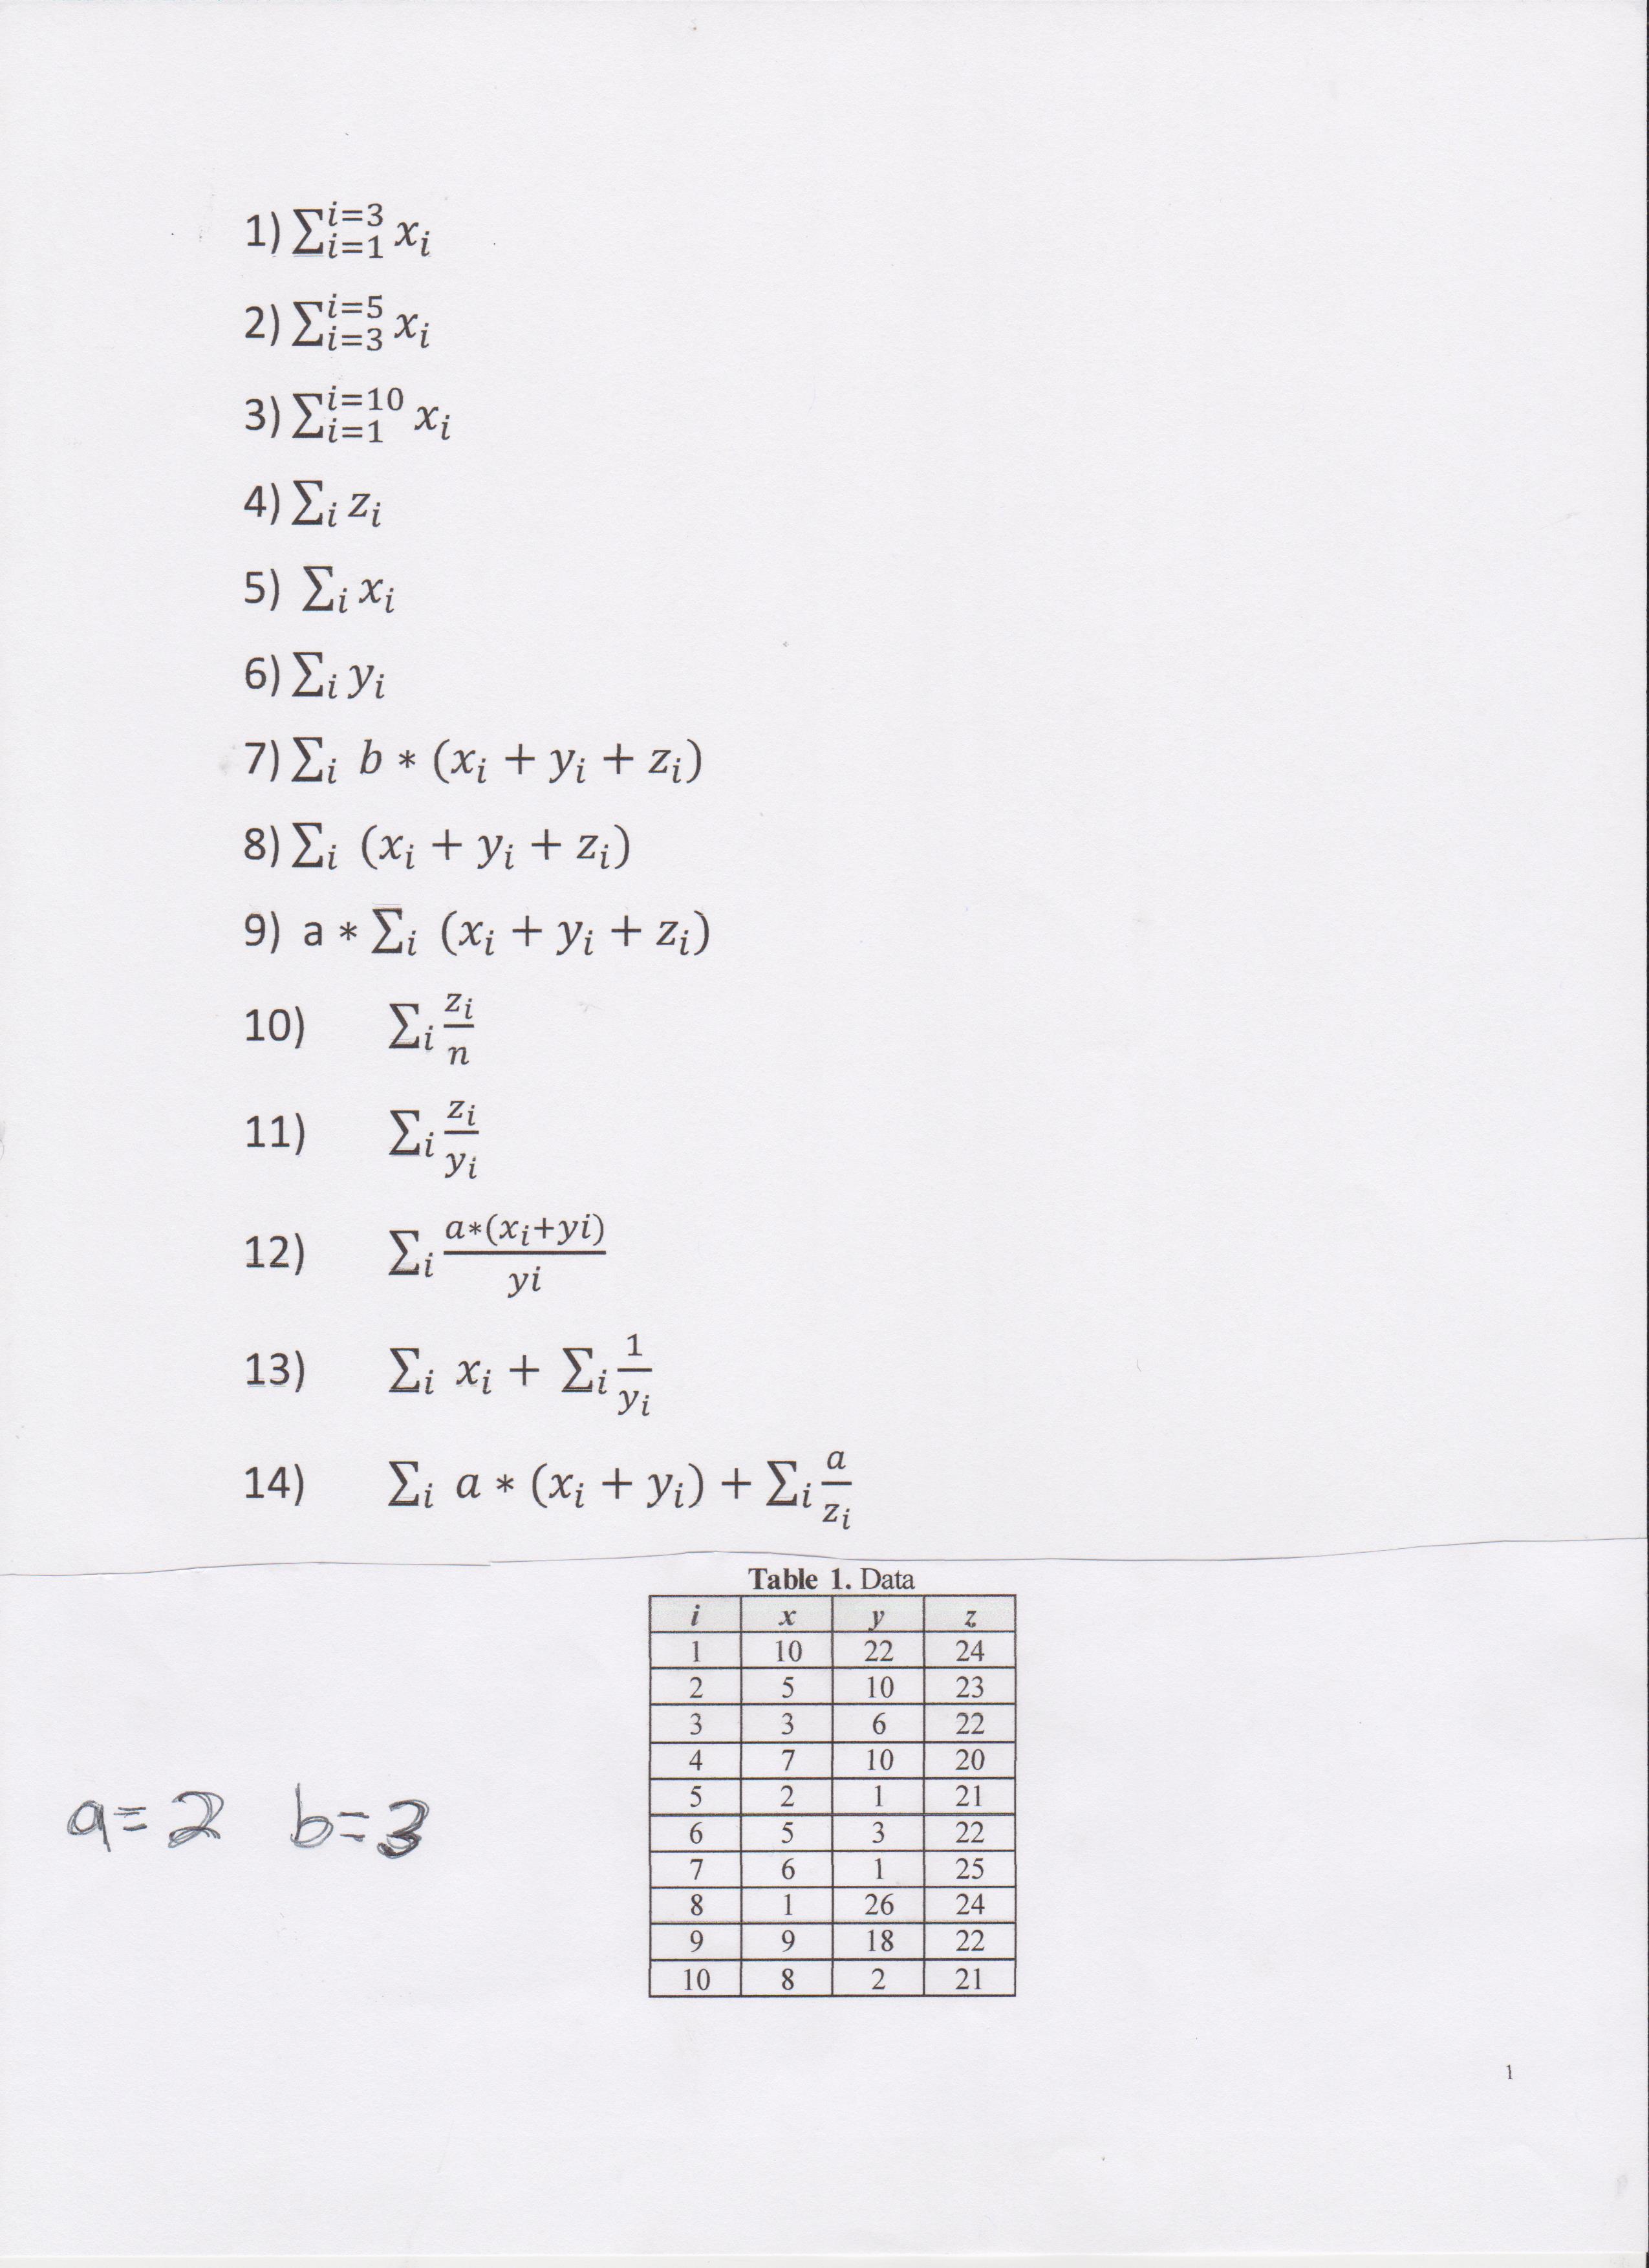 1) ∑_{i=1}^{i=3} x_i
2) ∑_{i=3}^{i=5} x_i
3) ∑_{i=1}^{i=10} x_i
4) ∑_i z_i
5) ∑_i x_i
6) ∑_i y_i
7) ∑_i b * (x_i + y_i + z_i)
8) ∑_i (x_i + y_i + z_i)
9) a * ∑_i (x_i + y_i + z_i)
10) ∑_i \frac{z_i}{n}
11) ∑_i \frac{z_i}{y_i}
12) ∑_i \frac{a*(x_i+yi)}{yi}
13) ∑_i x_i + ∑_i \frac{1}{y_i}
14) ∑_i a * (x_i + y_i) + ∑_i \frac{a}{z_i}
Table 1. Data
i x y z
1 10 22 24
2 5 10 23
3 3 6 22
4 7 10 20
5 2 1 21
6 5 3 22
7 6 1 25
8 1 26 24
9 9 18 22
10 8 2 21
a=2 b=3
1